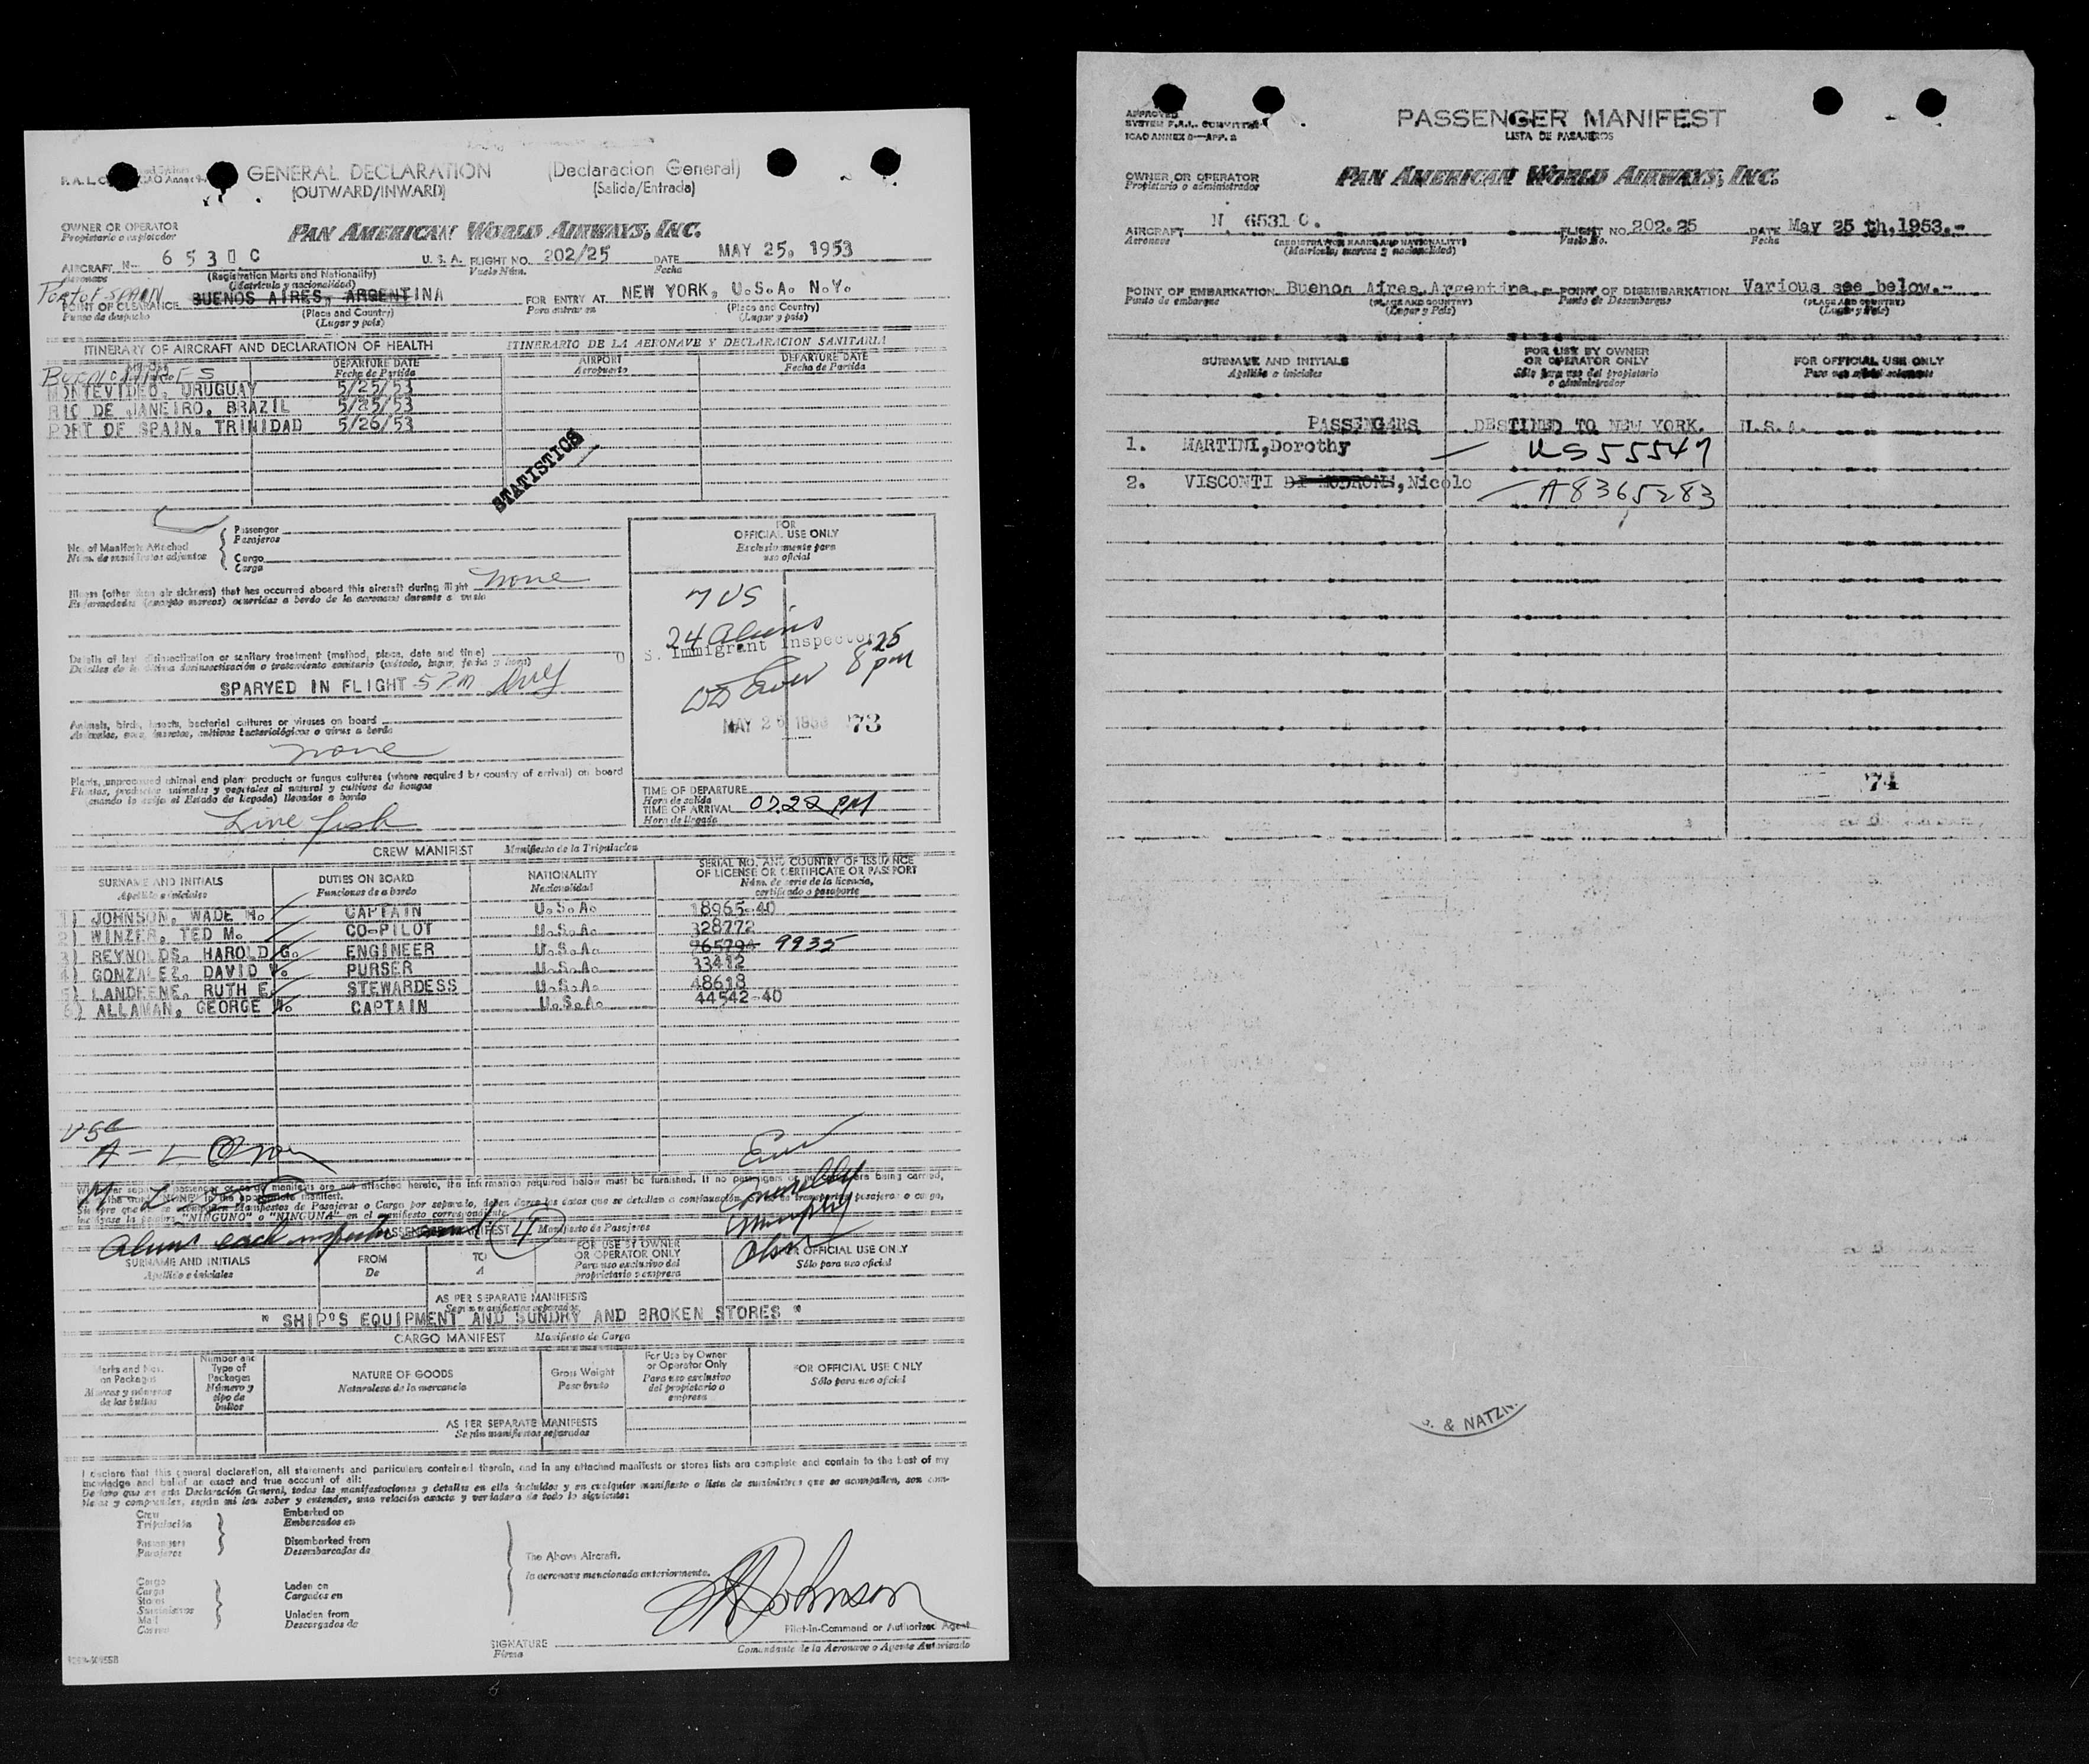 GENERAL DECLARATION (Declaracion General)
(OUTWARD/INWARD) (Salida/Entrada)
OWNER OR OPERATOR
Propietario o explotador
PAN AMERICAN WORLD AIRWAYS, INC.
AIRCRAFT N- 653 C U. S. A. FLIGHT NO. 202/25 DATE MAY 25, 1953
Aeronave Vuelo Núm. Fecha
(Registration Marks and Nationality)
(Matrícula y nacionalidad)
Port of Spain
POINT OF CLEARANCE BUENOS AIRES, ARGENTINA FOR ENTRY AT NEW YORK, U.S.A. N.Y.
Punto de despacho (Place and Country) Para entrar en (Place and Country)
(Lugar y país) (Lugar y país)
ITINERARY OF AIRCRAFT AND DECLARATION OF HEALTH ITINERARIO DE LA AERONAVE Y DECLARACION SANITARIA
DEPARTURE DATE AIRPORT DEPARTURE DATE
Fecha de Partida Aeropuerto Fecha de Partida
BUENOS AIRES
MONTEVIDEO, URUGUAY 5/25/53
RIO DE JANEIRO, BRAZIL 5/25/53
PORT OF SPAIN, TRINIDAD 5/26/53
STATISTICS
No. of Manifests Attached
Núm. de manifiestos adjuntos
Passenger
Pasajeros
Cargo
Carga
Illness (other than air sickness) that has occurred aboard this aircraft during flight none
Enfermedades (excepto mareos) ocurridas a bordo de la aeronave durante el vuelo
Details of last disinsectization or sanitary treatment (method, place, date and time)
Detalles de la última desinsectización o tratamiento sanitario (método, lugar, fecha y hora)
SPARYED IN FLIGHT 5 PM
Animals, birds, insects, bacterial cultures or viruses on board
Animales, aves, insectos, cultivos bacteriológicos o virus a bordo
none
Plants, unprocessed animal and plant products or fungus cultures (where required by country of arrival) on board
Plantas, productos animales y vegetales al natural y cultivos de hongos
(cuando lo exija el Estado de llegada) llevados a bordo
Live fish
FOR
OFFICIAL USE ONLY
Exclusivamente para
uso oficial
7 US
24 aliens
S. Immigrant Inspector
8 25 pm
MAY 26 1953 73
TIME OF DEPARTURE
Hora de salida
TIME OF ARRIVAL 0722 PM
Hora de llegada
CREW MANIFEST Manifiesto de la Tripulacion
SURNAME AND INITIALS DUTIES ON BOARD NATIONALITY SERIAL NO. AND COUNTRY OF ISSUANCE
Apellido e iniciales Funciones de a bordo Nacionalidad OF LICENSE OR CERTIFICATE OR PASSPORT
Núm. de serie de la licencia,
certificado o pasaporte
1) JOHNSON, WADE H. CAPTAIN U.S.A. 18965-40
2) WINZER, TED M. CO-PILOT U.S.A. 328772
3) REYNOLDS, HAROLD G. ENGINEER U.S.A. 9935
4) GONZALEZ, DAVID PURSER U.S.A. 33412
5) LANDEENE, RUTH E. STEWARDESS U.S.A. 48618
6) ALLAMAN, GEORGE W. CAPTAIN U.S.A. 44542-40
USC
Murphy
Olson
PASSENGER MANIFEST 4 Manifiesto de Pasajeros
SURNAME AND INITIALS FROM TO FOR USE BY OWNER FOR OFFICIAL USE ONLY
Apellido e iniciales De A OR OPERATOR ONLY Sólo para uso oficial
Para uso exclusivo del
propietario o empresa
AS PER SEPARATE MANIFESTS
Según manifiestos separados
" SHIP'S EQUIPMENT AND SUNDRY AND BROKEN STORES "
CARGO MANIFEST Manifiesto de Carga
Marks and Nos. on Packages
Marcas y números de los bultos
Number and Type of Packages
Número y tipo de bultos
NATURE OF GOODS
Naturaleza de la mercancia
Gross Weight
Peso bruto
For Use by Owner or Operator Only
Para uso exclusivo del propietario o empresa
FOR OFFICIAL USE ONLY
Sólo para uso oficial
AS PER SEPARATE MANIFESTS
Según manifiestos separados
I declare that this general declaration, all statements and particulars contained therein, and in any attached manifests or stores lists are complete and contain to the best of my
knowledge and belief an exact and true account of all:
Declaro que en esta Declaración General, todas las manifestaciones y detalles en ella incluidos y en cualquier manifiesto o lista de suministros que se acompañen, son com-
pletos y comprenden, según mi leal saber y entender, una relación exacta y verdadera de todo lo siguiente:
Crew Embarked on
Tripulación Embarcados en
Passengers Disembarked from
Pasajeros Desembarcados de
The Above Aircraft.
la aeronave mencionada anteriormente.
Cargo Laden on
Carga Cargados en
Stores
Suministros Unladen from
Mail Descargados de
Correo
Johnson
Pilot-in-Command or Authorized Agent
SIGNATURE Comandante de la Aeronave o Agente Autorizado
Firma
APPROVED
SYSTEM F.A.L. COMMITTEE
ICAO ANNEX 9—APP. 2
PASSENGER MANIFEST
LISTA DE PASAJEROS
OWNER OR OPERATOR
Propietario o administrador
PAN AMERICAN WORLD AIRWAYS, INC.
AIRCRAFT N. 6531 C. FLIGHT NO. 202.25 DATE May 25 th, 1953.-
Aeronave (REGISTRATION MARKS AND NATIONALITY) Vuelo No. Fecha
(Matrícula, marcas y nacionalidad)
POINT OF EMBARKATION Buenos Aires, Argentina.- POINT OF DISEMBARKATION Various see below.-
Punto de embarque (PLACE AND COUNTRY) Punto de Desembarque (PLACE AND COUNTRY)
(Lugar y País) (Lugar y País)
SURNAME AND INITIALS FOR USE BY OWNER FOR OFFICIAL USE ONLY
Apellido e iniciales OR OPERATOR ONLY Para uso oficial solamente
Sólo para uso del propietario
o administrador
PASSENGERS DESTINED TO NEW YORK. U.S.A.
1. MARTINI, Dorothy US 55547
2. VISCONTI DI MODRONE, Nicolo A8365283
74
& NATZN.